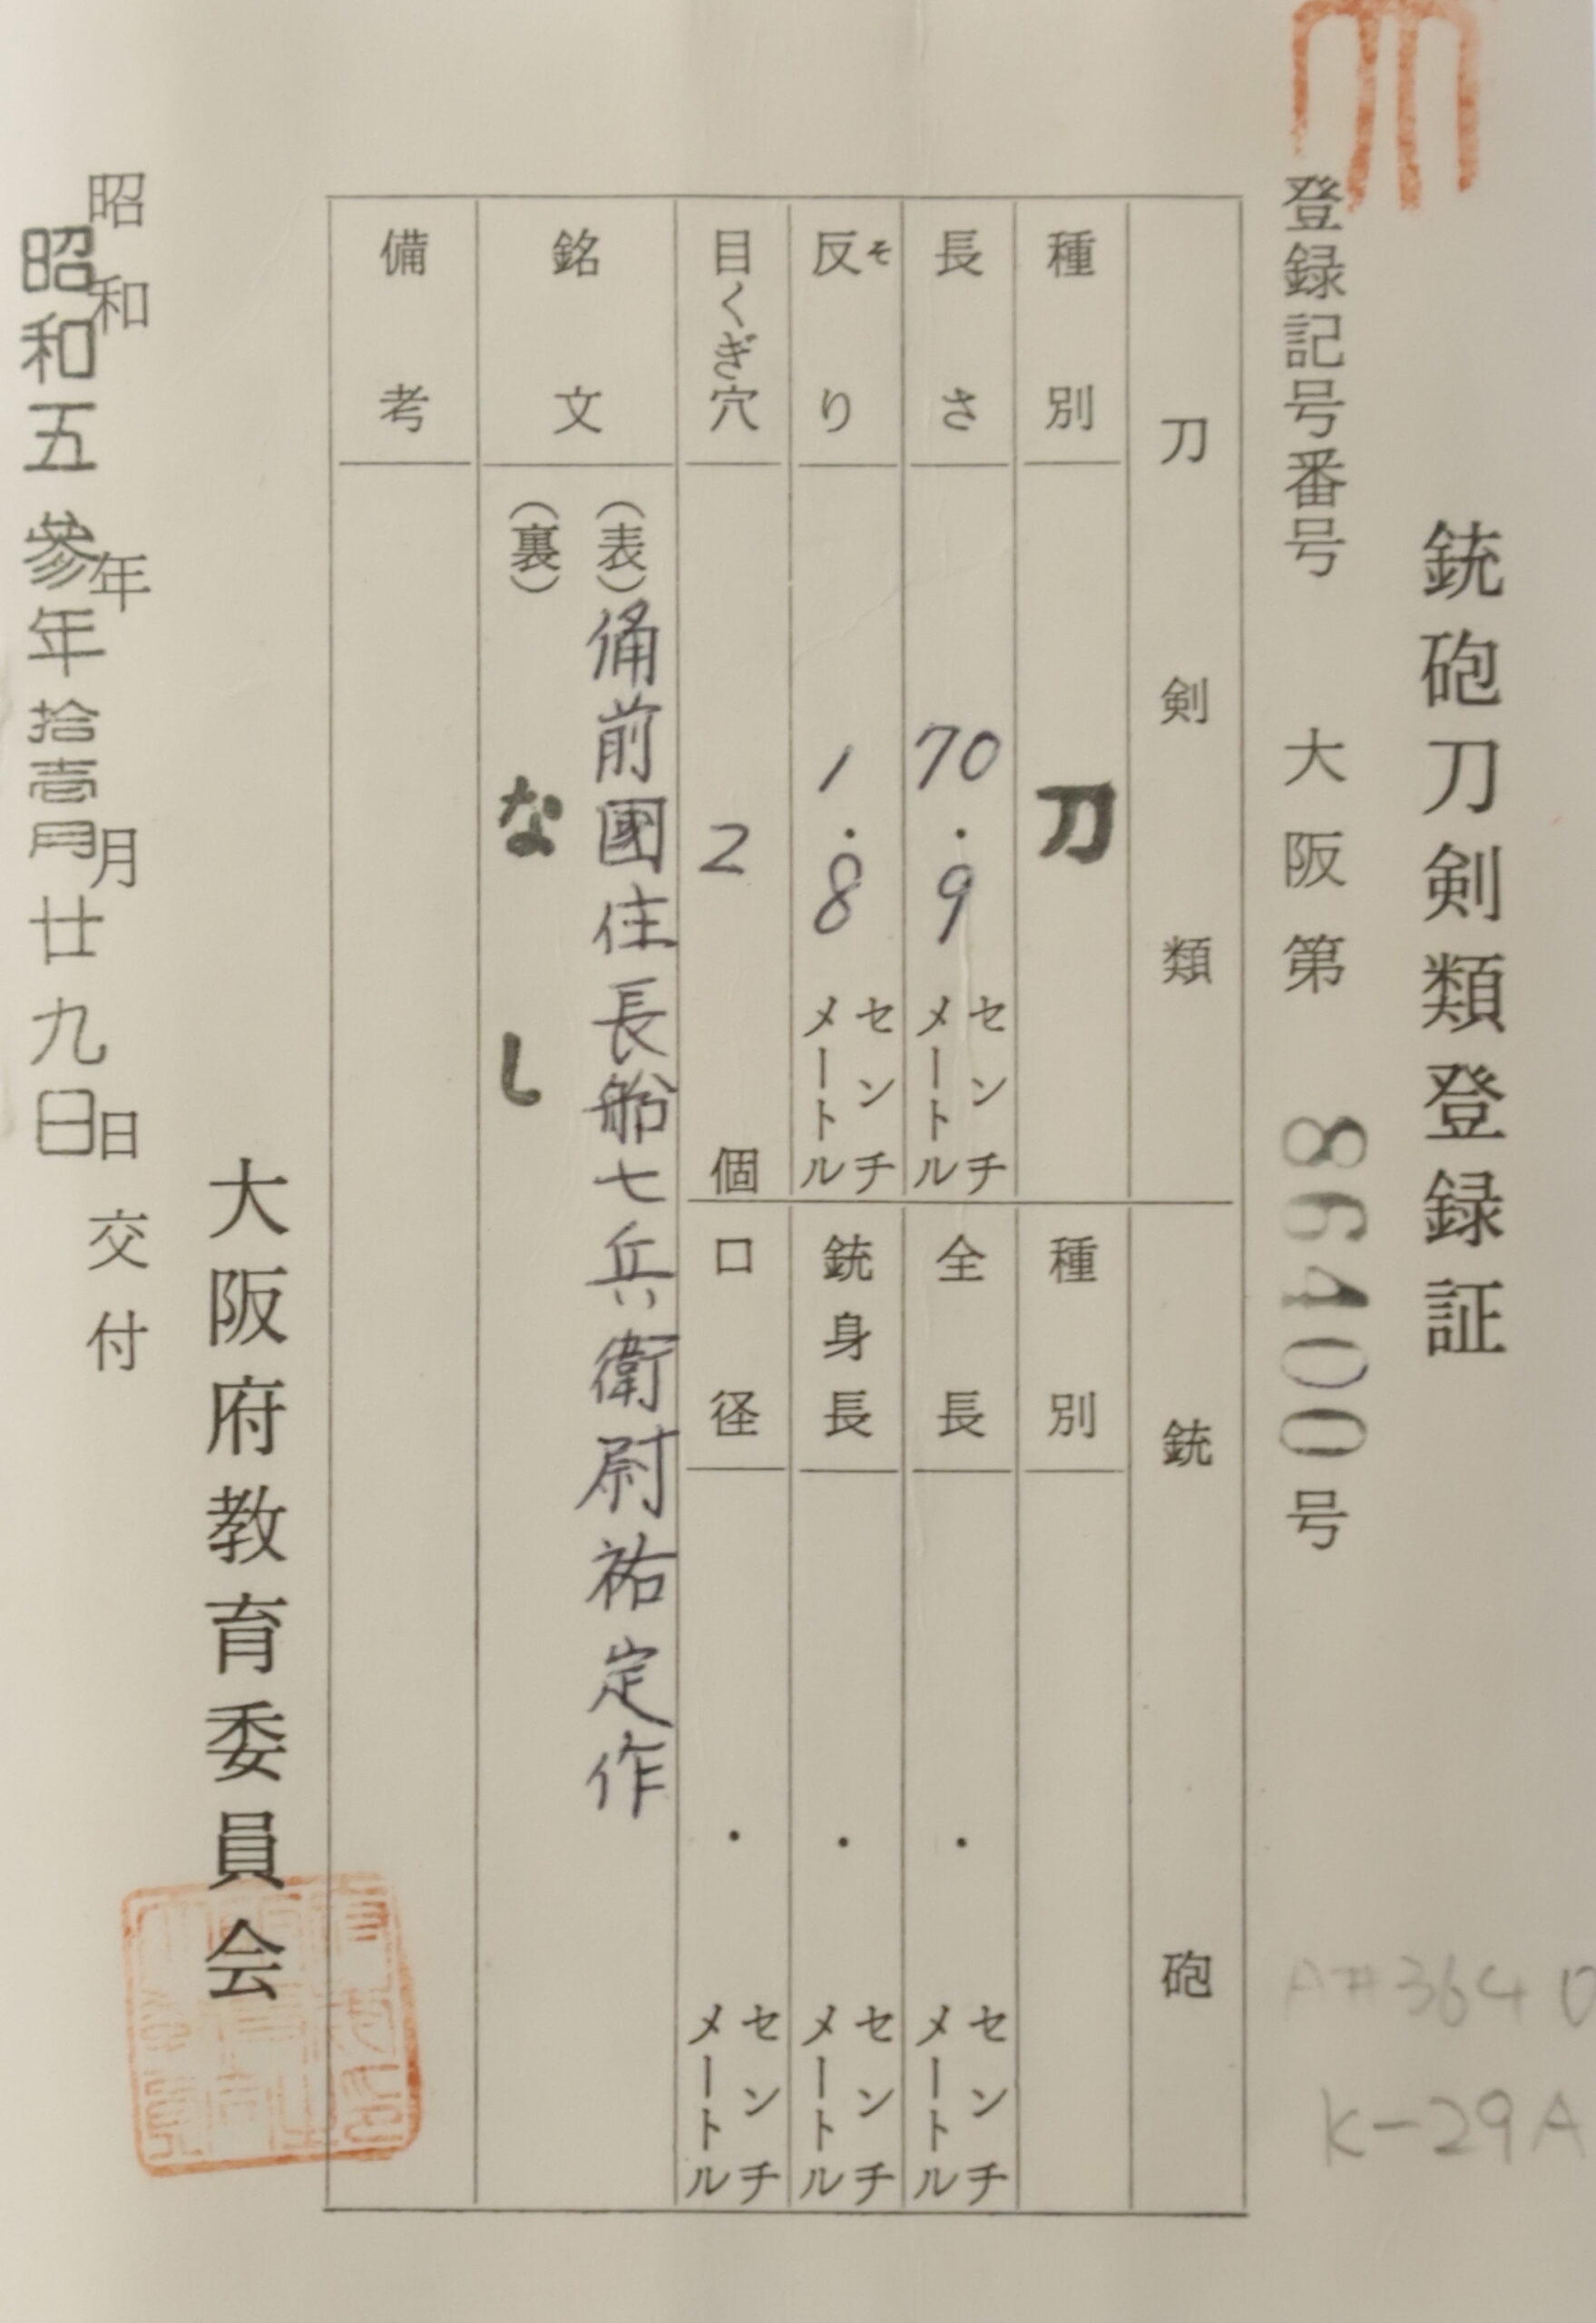 銃砲刀剣類登録証
登録記号番号 大阪第 86400号
刀剣類
種別 刀
長さ 70.9 センチメートル
反り そ 1.8 センチメートル
目くぎ穴 2 個
銃砲
種別
全長 . センチメートル
銃身長 . センチメートル
口径 . センチメートル
銘文
(表) 備前國住長船七兵衛尉祐定作
(裏) なし
備考
大阪府教育委員会
昭和 年 月 日交付
昭和五参年拾壱月廿九日
K-29A